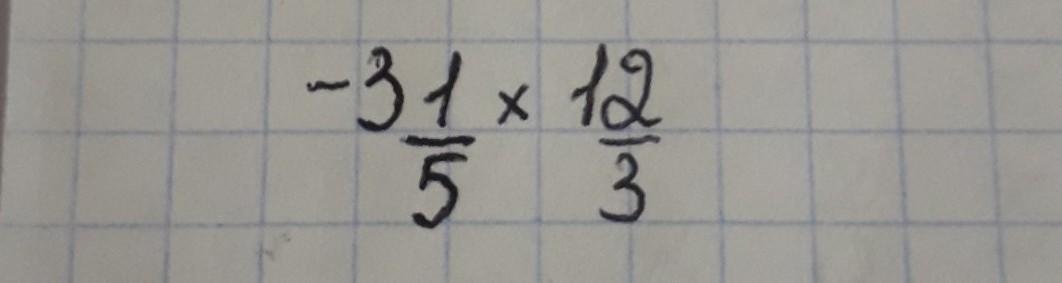 -3 1/5 × 1 2/3